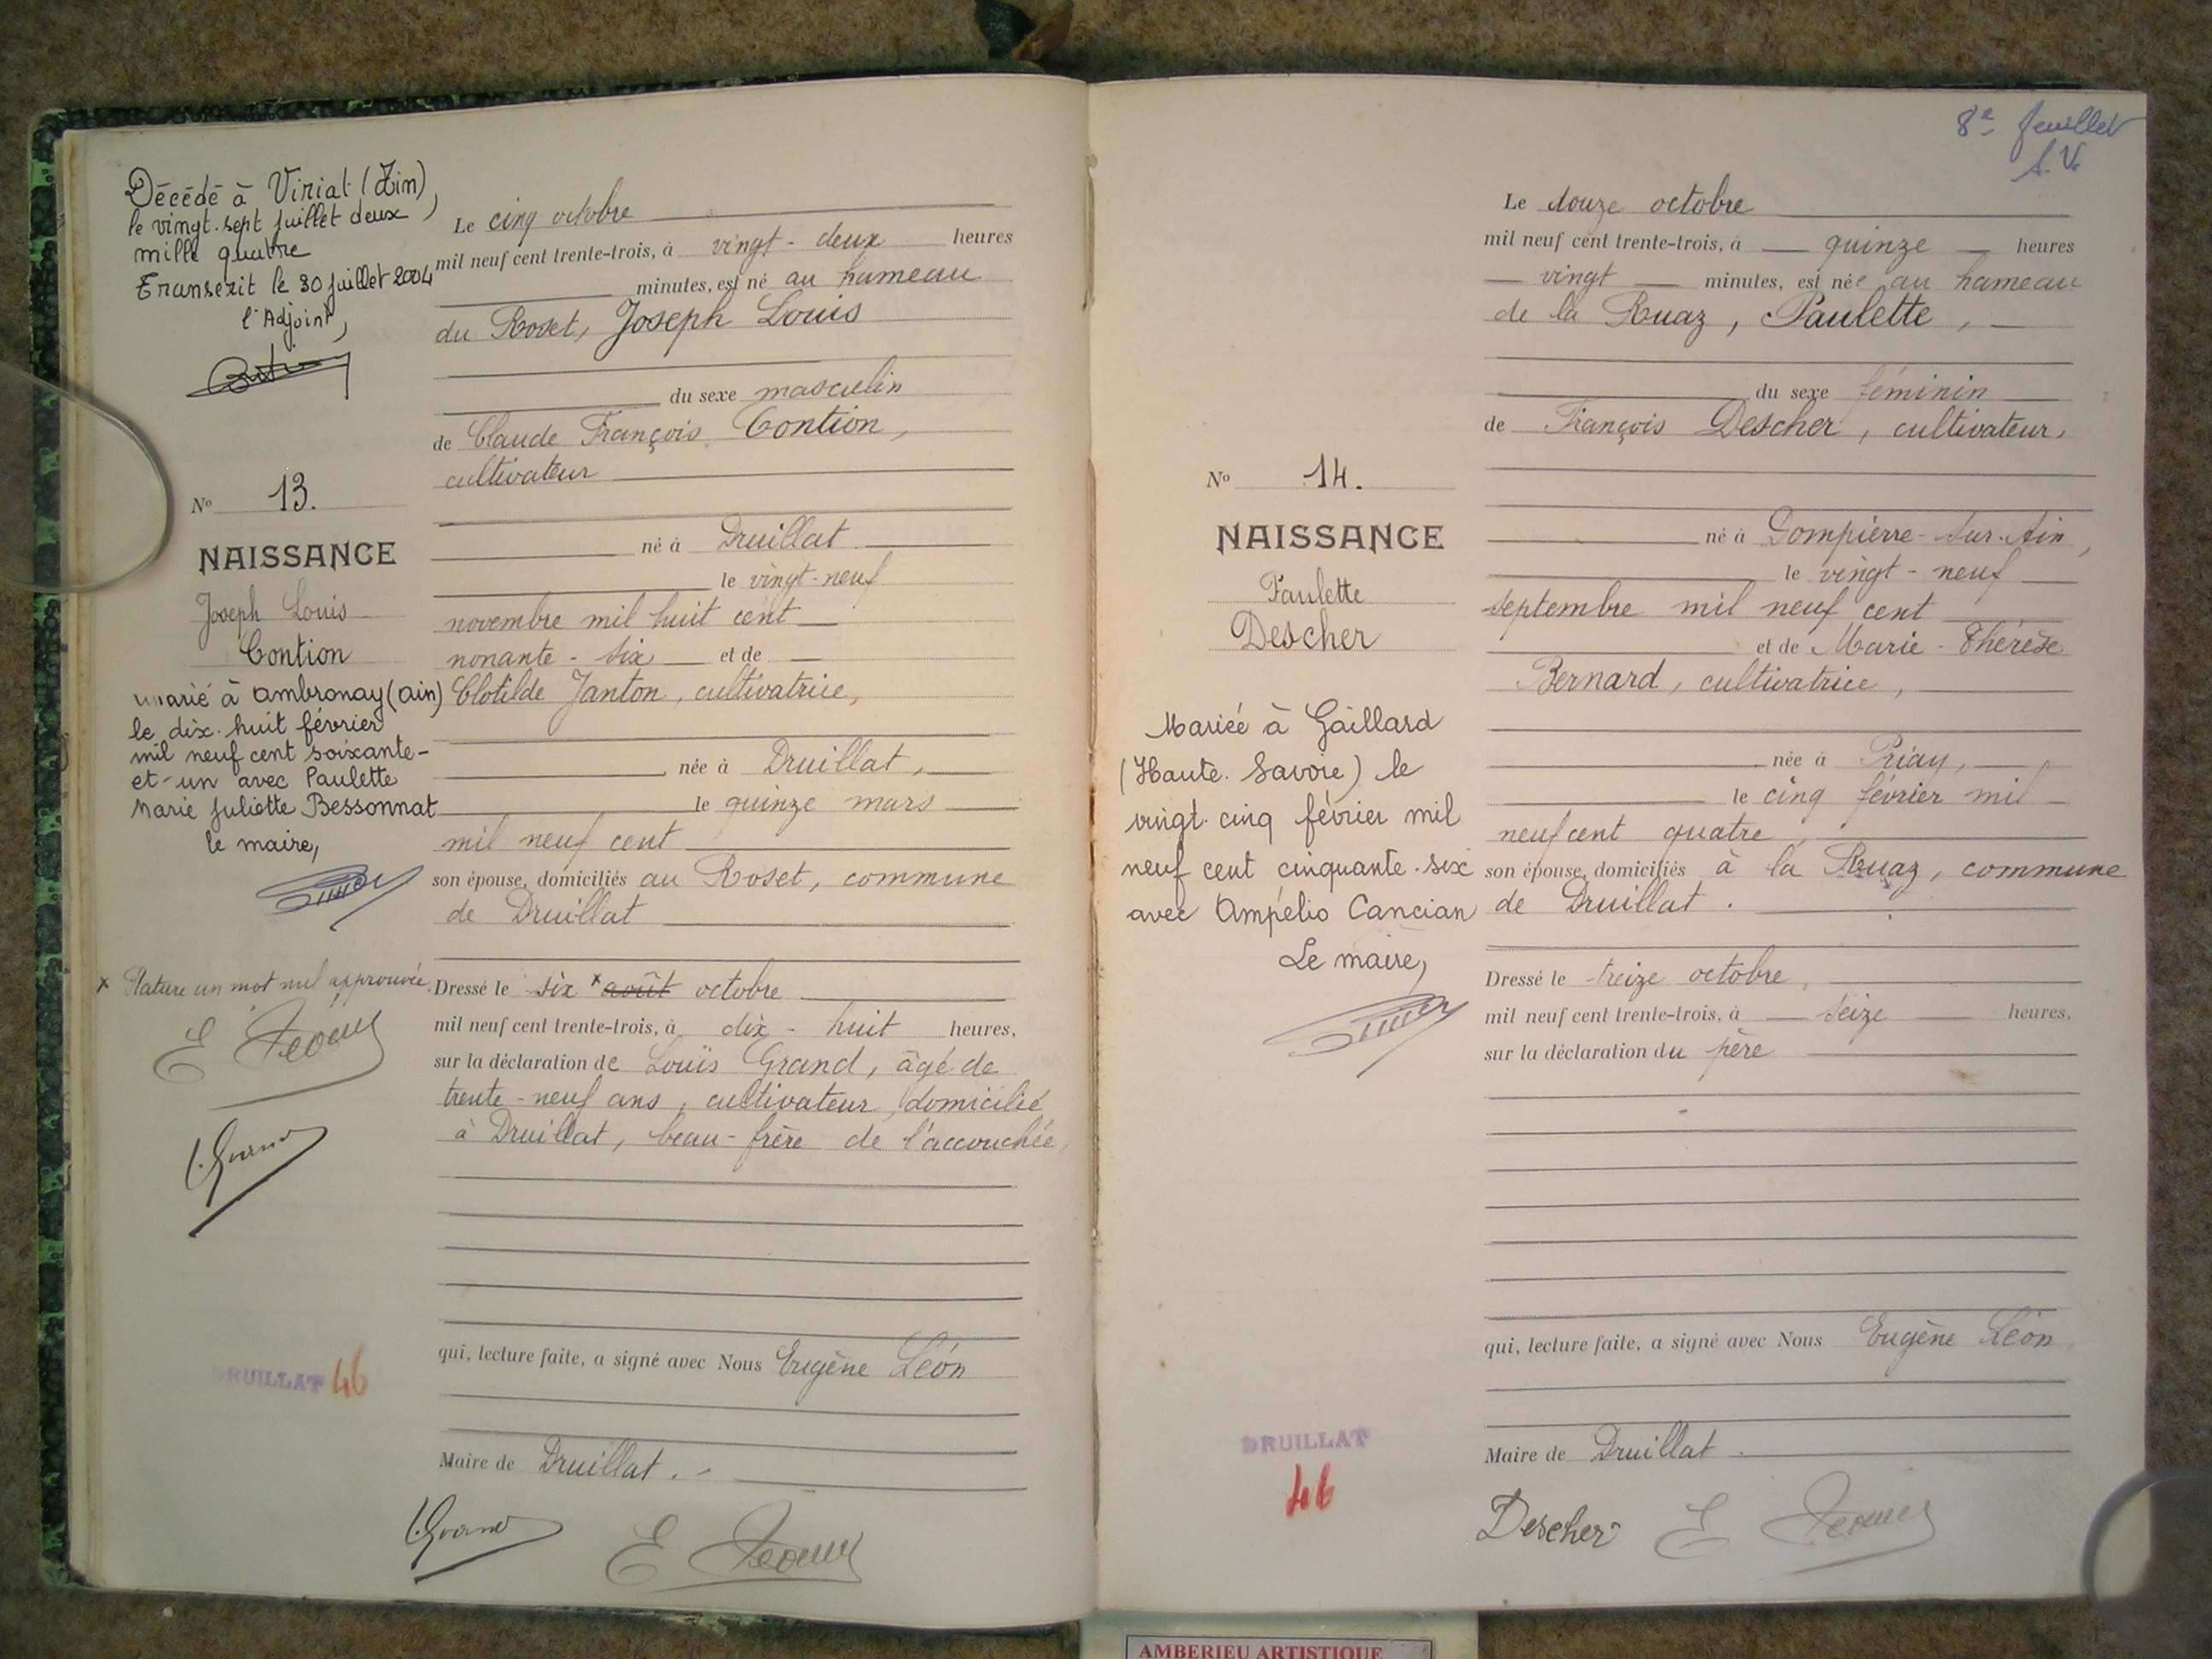 Décédé à Viriat (Ain)
le vingt-sept juillet deux
mille quatre
Transcrit le 30 juillet 2004
l'Adjoint,
N° 13.
NAISSANCE
Joseph Louis
Contion
Marié à Ambronay (Ain)
le dix-huit février
mil neuf cent soixante-
et-un avec Paulette
Marie Juliette Bessonnat
le maire,
x Rature un mot nul approuvée.
DRUILLAT 46
Le cinq octobre
mil neuf cent trente-trois, à vingt-deux heures
minutes, est né au hameau
du Roset, Joseph Louis
du sexe masculin
de Claude François Contion,
cultivateur
né à Druillat
le vingt-neuf
novembre mil huit cent
nonante-six et de
Clotilde Janton, cultivatrice,
née à Druillat,
le quinze mars
mil neuf cent
son épouse, domiciliés au Roset, commune
de Druillat
Dressé le six x août octobre
mil neuf cent trente-trois, à dix-huit heures,
sur la déclaration de Louis Grand, âgé de
trente-neuf ans, cultivateur, domicilié
à Druillat, beau-frère de l'accouchée,
qui, lecture faite, a signé avec Nous Eugène Léon
Maire de Druillat.
8e feuillet
N° 14.
NAISSANCE
Paulette
Descher
Mariée à Gaillard
(Haute-Savoie) le
vingt-cinq février mil
neuf cent cinquante-six
avec Ampélio Cancian
Le maire,
DRUILLAT
46
Le douze octobre
mil neuf cent trente-trois, à quinze heures
vingt minutes, est née au hameau
de la Ruaz, Paulette,
du sexe féminin
de François Descher, cultivateur,
né à Dompierre-sur-Ain,
le vingt-neuf
septembre mil neuf cent
et de Marie-Thérèse
Bernard, cultivatrice,
née à Priay,
le cinq février mil
neuf cent quatre,
son épouse, domiciliés à la Ruaz, commune
de Druillat.
Dressé le treize octobre,
mil neuf cent trente-trois, à seize heures,
sur la déclaration du père
qui, lecture faite, a signé avec Nous Eugène Léon
Maire de Druillat.
Descher
AMBERIEU ARTISTIQUE